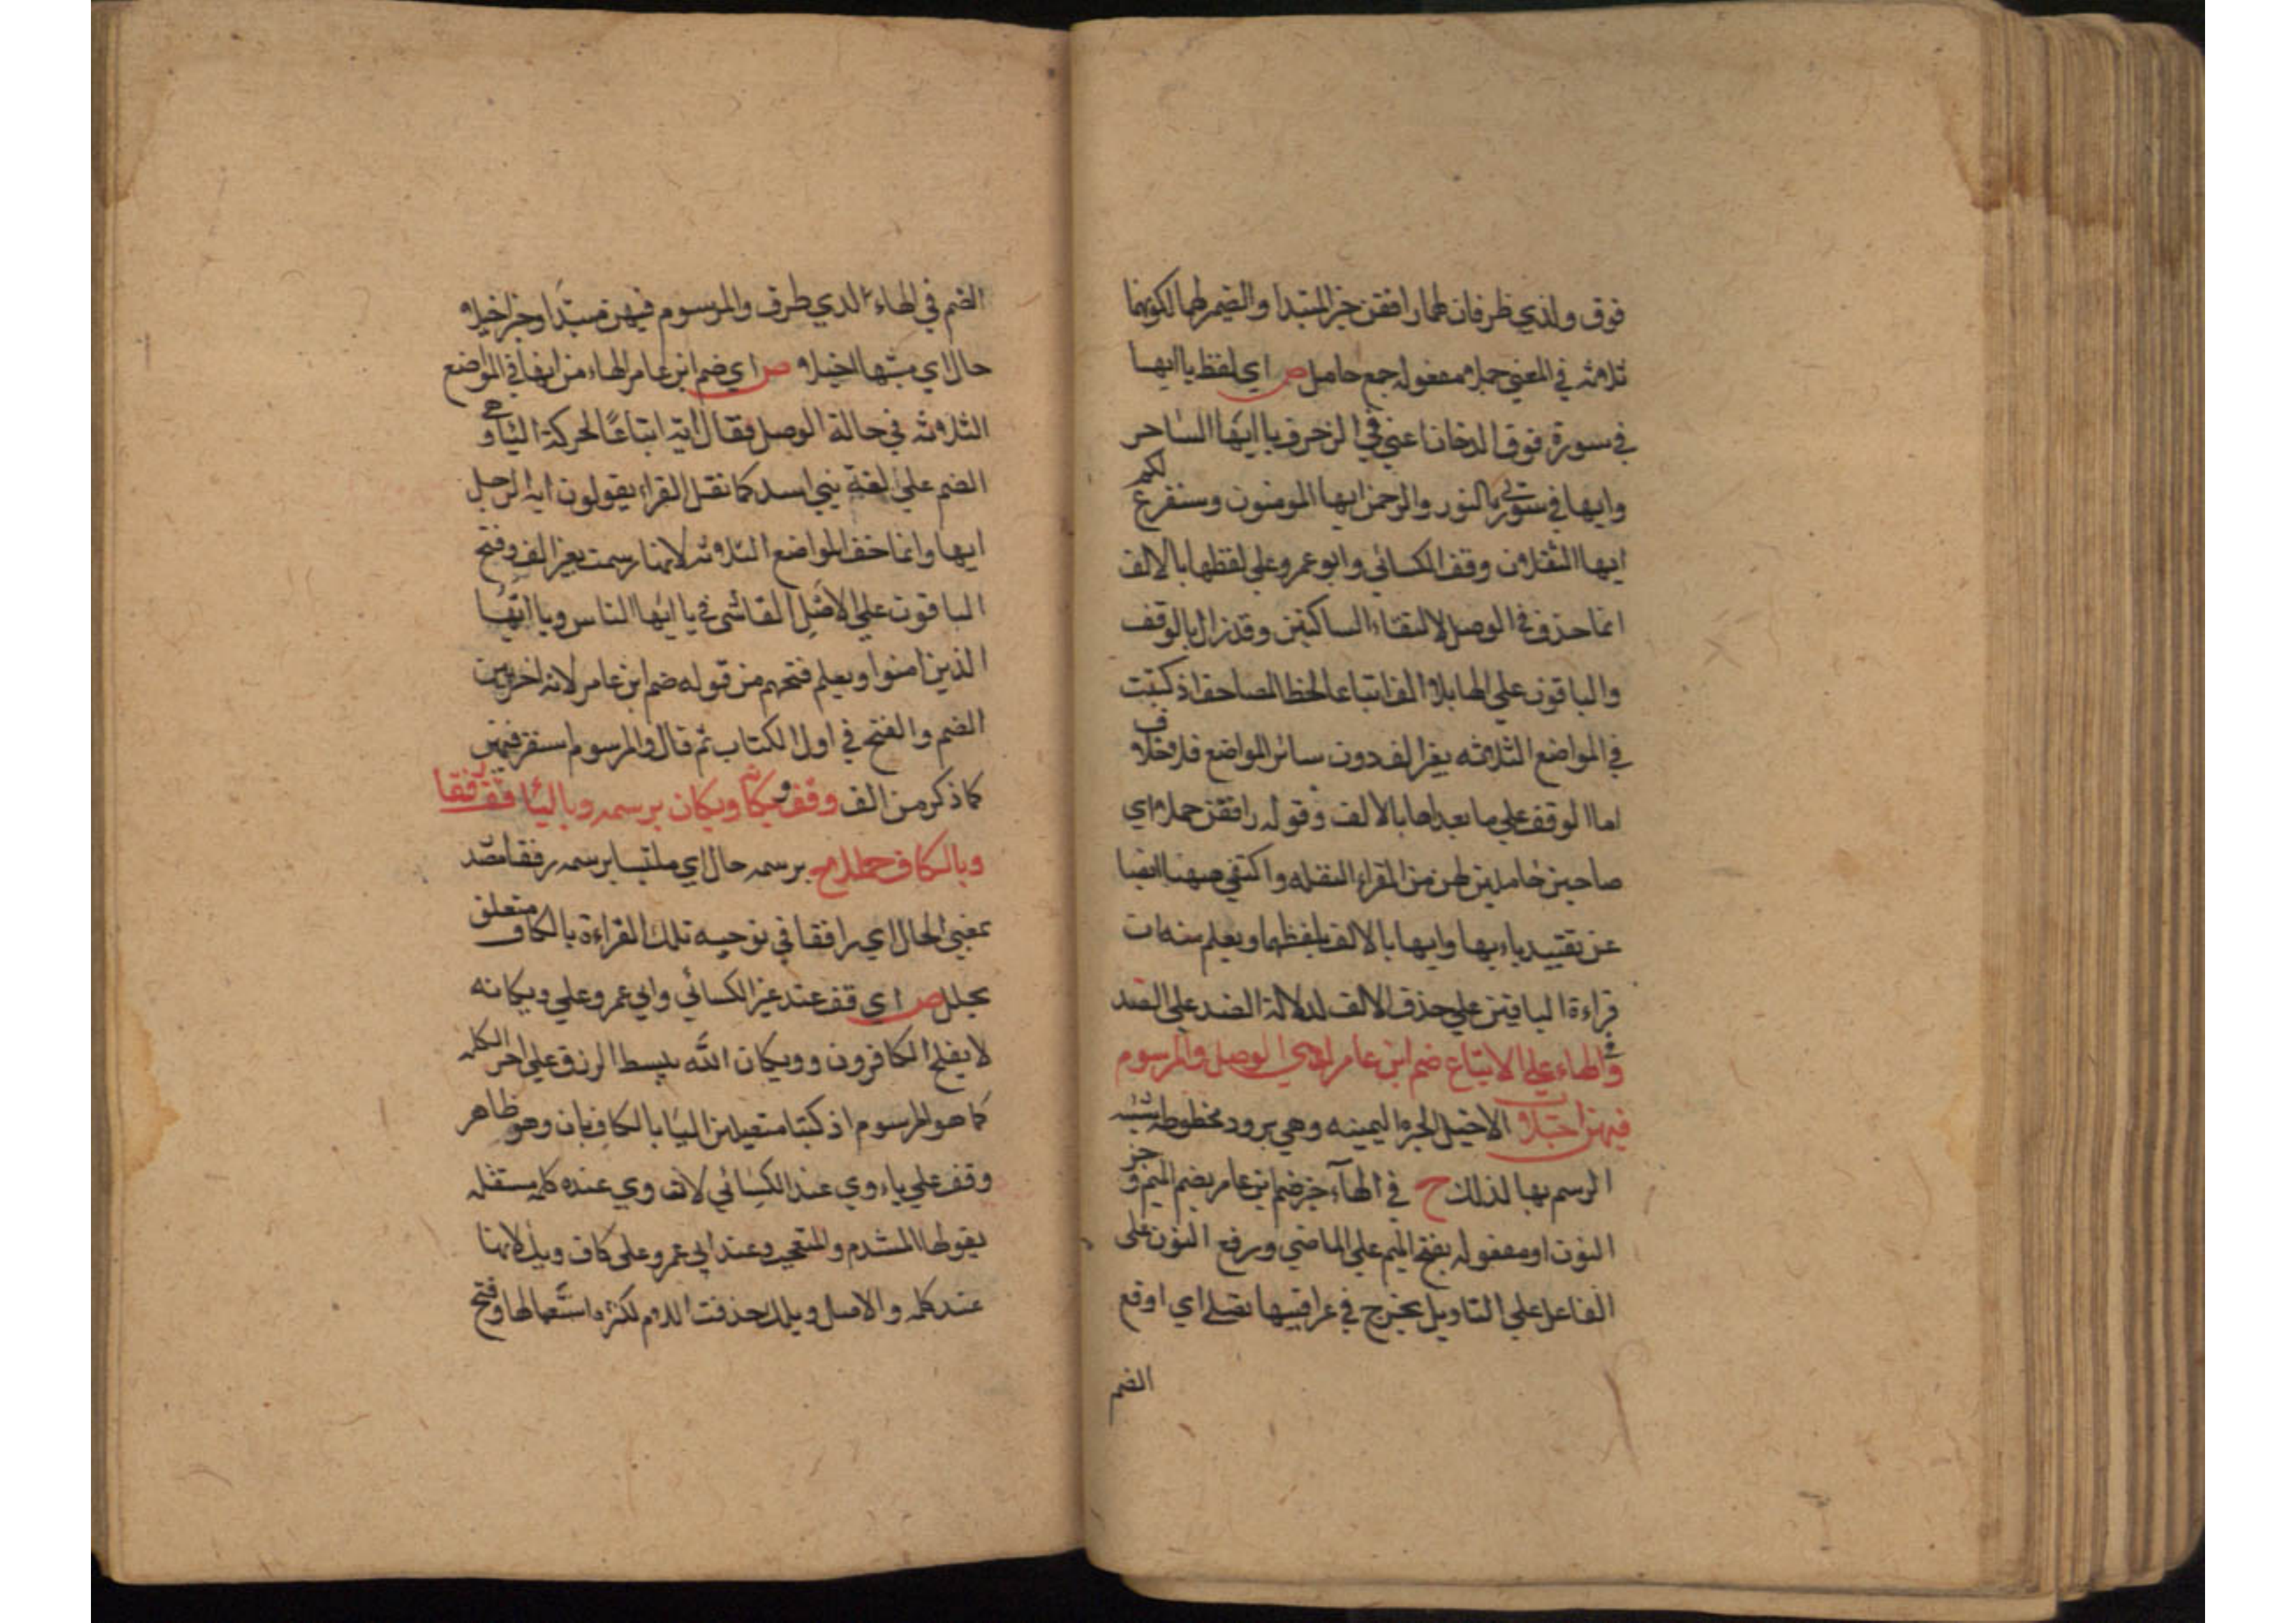 فوق ولدي ظرفان لهما رافقن خبر المبتدا والضمير لها لكونها
ثلاثه في المعنى حملا مفعوله جمع حامل ص اي لفظ يا ايها
في سورة فوق الدخان اعني في الزخرف يا ايها الساحر
وايها في سورتي النور والرحمن ايها المومنون وسنفرغ لكم
ايها الثقلان وقف الكسائي وابو عمرو على لفظها بالالف
انما حذف في الوصل لالتقاء الساكنين وقد زال بالوقف
والباقون على الها بلا الف اتباعا لخط المصاحف اذ كتبت
في المواضع الثلاثه بغير الف دون سائر المواضع فلا خلاف
اما الوقف على ما بعداها بالالف وقوله رافقن حملا اي
صاحبن حاملين لهن من القراء النقله واكتفي ههنا ايضا
عن تقييد يا ايها وايها بالالف بلفظهما ويعلم منه ان
قراءة الباقين على حذف الالف لدلالة الضد على الضد
وفي الهاء على الاتباع ضم ابن عامر لدى الوصل والمرسوم
فيهن اخيلا الاخيل الحبرة اليمينه وهي برود مخطوطة شبه
الرسم بها لذلك ح في الهآء خبر ضم ابن عامر بضم الميم وجر
النون او مفعوله بفتح الميم على الماضي ورفع النون على
الفاعل على التاويل بخبرج في عراقيبها نصلي اي اوقع
الضم
الضم في الهاء لدي ظرف والمرسوم فيهن مبتدا وخبر اخيلا
حال اي مشبها اخيلا ص اي ضم ابن عامر الهاء من ايها في المواضع
الثلاثه في حالة الوصل فقال ايه اتباعًا لحركة الياء وهي
الضم على لغة بني اسد كما نقل الفراء يقولون ايه الرجل
ايها وانما خص المواضع الثلاثه لانها رسمت بغير الف وفتح
الباقون على الاصل الفاشي في يا ايها الناس ويا ايها
الذين امنوا ويعلم فتحهم من قوله ضم ابن عامر لانه اخى بين
الضم والفتح في اول الكتاب ثم قال والمرسوم استقر فيهن
كما ذكر من الف وقف ويكانه ويكان برسمه وبالياء قف رفقا
وبالكاف حللا ح برسمه حال اي ملتبسا برسمه رفقا مصدر
بمعنى الحال اي رافقا في توجيه تلك القراءة بالكاف متعلق
بحلل ص اي قف عند غير الكسائي وابي عمرو على ويكانه
لا يفلح الكافرون وويكان الله يبسط الرزق على اخر الكلمه
كما هو المرسوم اذ كتبا متصلين اليا بالكاف بان وهو ظاهر
وقف على ياء وي عند الكسائي لان وي عنده كلمة مستقله
يقولها المتندم والمتعجب وعند ابي عمرو على كاف ويك لانها
عنده كلمه والاصل ويلك حذفت اللام لكثرة استعمالها وفتح